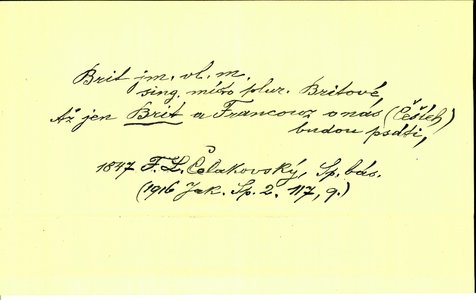 Brit jm. vl. m.
sing. místo plur. Britové
Až jen Brit a Francouz o nás (Češích)
budou psáti,
1847 F. L. Čelakovský, Sp. bás.
(1916 Jak. Sp. 2. 117, 9.)